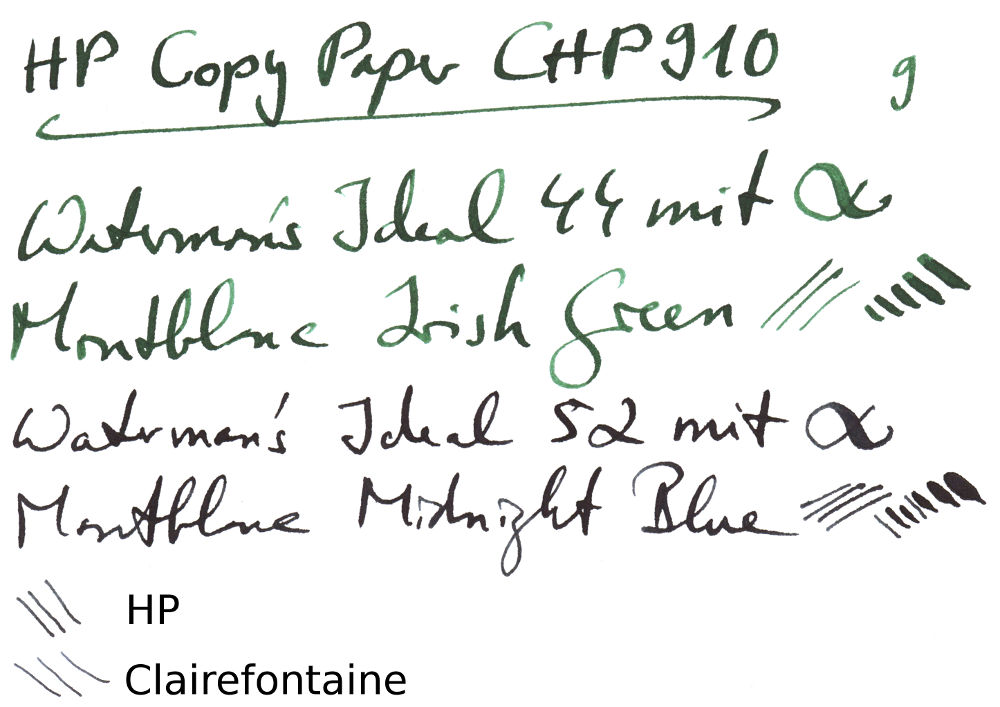 HP Copy Paper CHP910 g
Waterman's Ideal 44 mit α
Montblanc Irish Green
Waterman's Ideal 52 mit α
Montblanc Midnight Blue
HP
Clairefontaine